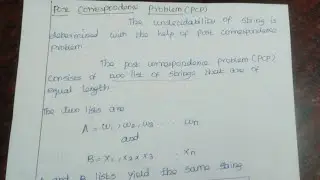 Post Correspondence Problem (PCP)
The undecidability of string is
determined with the help of post correspondence
problem
The post correspondence problem (PCP)
consists of two list of strings that are of
equal length.
The two lists are
A = w1, w2, w3 ... wn
and
B = x1, x2, x3 ... xn
and B lists yield the same string